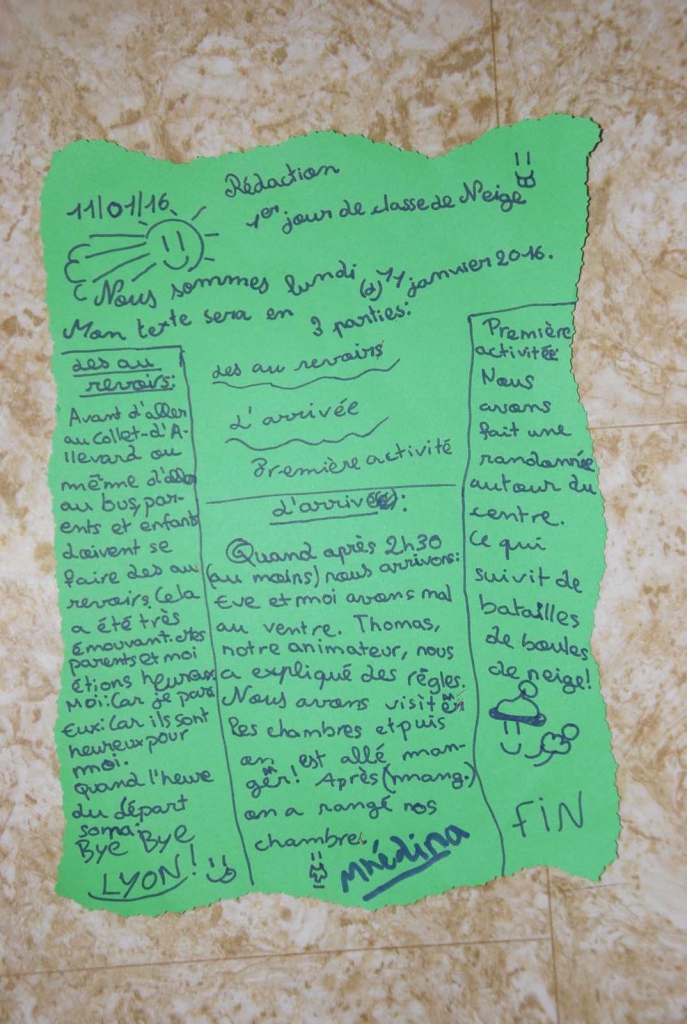 Rédaction
11/01/16
1er jour de classe de Neige
Nous sommes lundi, (d) 11 janvier 2016.
Mon texte sera en 3 parties:
Les au revoirs
L'arrivée
Première activité
Les au
revoirs:
Avant d'aller
au Collet-d'A-
llevard ou
même d'aller
au bus, par-
ents et enfants
doivent se
faire des au
revoirs. Cela
a été très
émouvant. Mes
parents et moi
étions heureux
Moi: Car je pars
Eux: Car ils sont
heureux pour
moi.
quand l'heure
du départ
sonna:
Bye Bye
LYON!
L'arrivée:
Quand après 2h30
(au moins) nous arrivons:
Eve et moi avons mal
au ventre. Thomas,
notre animateur, nous
a expliqué des règles.
Nous avons visité
les chambres et puis
on est allé man-
gér! Après (mang.)
on a rangé nos
chambre.
Mhédina
Première
activité:
Nous
avons
fait une
randonnée
autour du
centre.
Ce qui
suivit de
batailles
de boules
de neige!
FiN